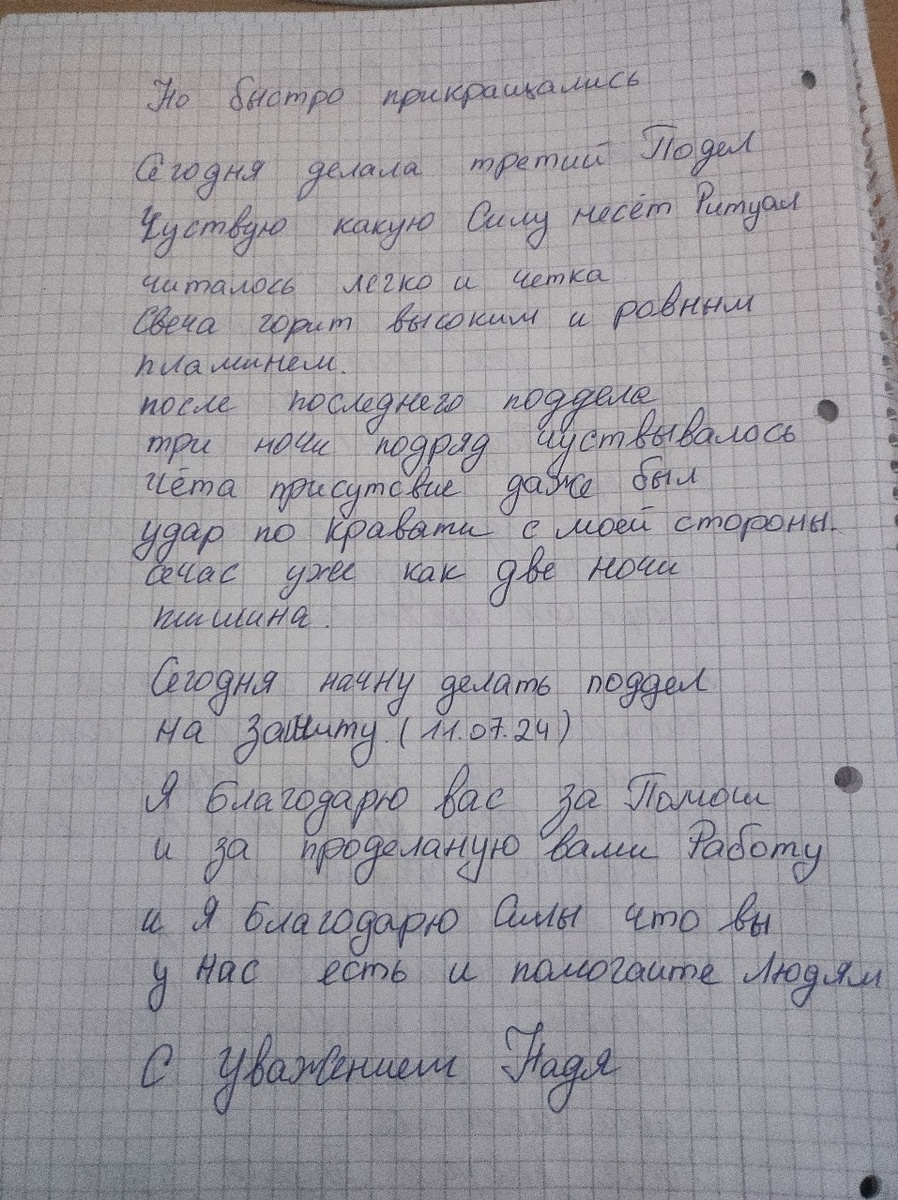 Но быстро прикращались
Сегодня делала третий Подел
Чуствую какую Силу несёт Ритуал
читалось легко и четка
Свеча горит высоким и ровным
пламинем.
после последнего поддела
три ночи подряд чуствывалось
чёта присутсвие даже был
удар по кравати с моей стороны.
сечас уже как две ночи
тишина.
Сегодня начну делать поддел
на защиту. (11.07.24)
Я благодарю вас за Помош
и за проделаную вами Работу
и я благодарю Силы что вы
у нас есть и помогаите людям
С Уважением Надя